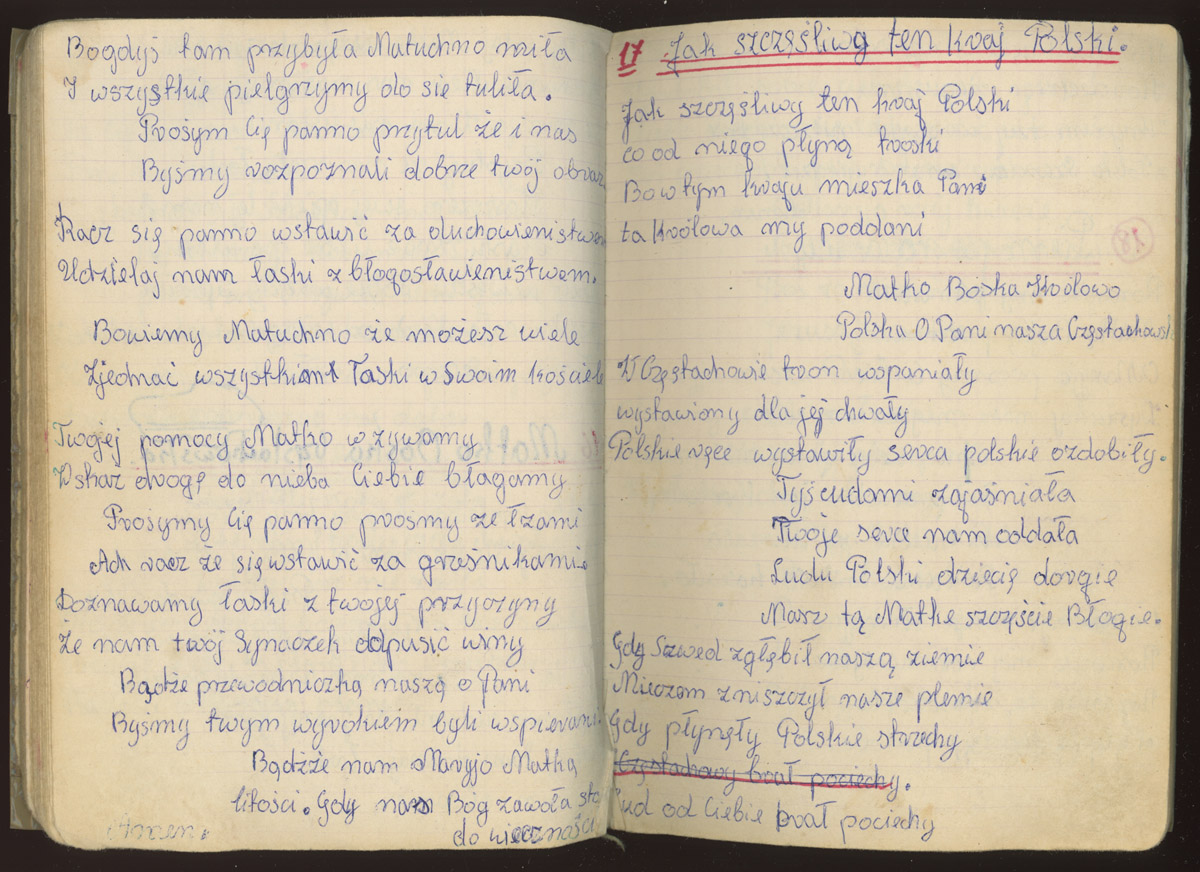 Bogdyś tam przybyła Matuchno miła
I wszystkie pielgrzymy do sie tuliła.
Prosym Cię panno przytul że i nas
Byśmy rozpoznali dobrze twój obraz
Racz się panno wstawić za duchowieństwem
Udzielaj nam łaski z błogosławieństwem.
Bowiemy Matuchno że możesz wiele
Zjednać wszystkim łaski w Swoim Kościele
Twojej pomocy Matko wzywamy
Wskaż drogę do nieba Ciebie błagamy
Prosymy Cię panno prosmy ze łzami
Ach racz że się wstawić za grześnikami
Doznawamy łaski z twojej przyczyny
Że nam twój Synaczek odpusić winy
Bądźe przewodniczką naszą o Pani
Byśmy twym wyrokiem byli wspierani.
Bądźże nam Maryjo Matką
litości. Gdy nam Bóg zawoła stąd
do wieczności
Amen.
17 Jak szczęśliwy ten kraj Polski.
Jak szczęśliwy ten kraj Polski
co od niego płyną troski
Bo w tym kraju mieszka Pani
ta Królowa my poddani
Matko Boska Królowo
Polska O Pani nasza Częstachowsk
W Częstachowie tron wspaniały
wystawiony dla jej chwały
Polskie ręce wystawiły serca polskie ozdobiły.
Tyś cudami zajaśniała
Twoje serce nam oddała
Ludu Polski dziecię drogie
Masz tą Matke szczęście Błogie.
Gdy Szwed zgłębił naszą ziemie
Mieczem zniszczył nasze plemie
Gdy płynęły Polskie strzechy
Częstachowy brał pociechy.
Lud od Ciebie brał pociechy
18